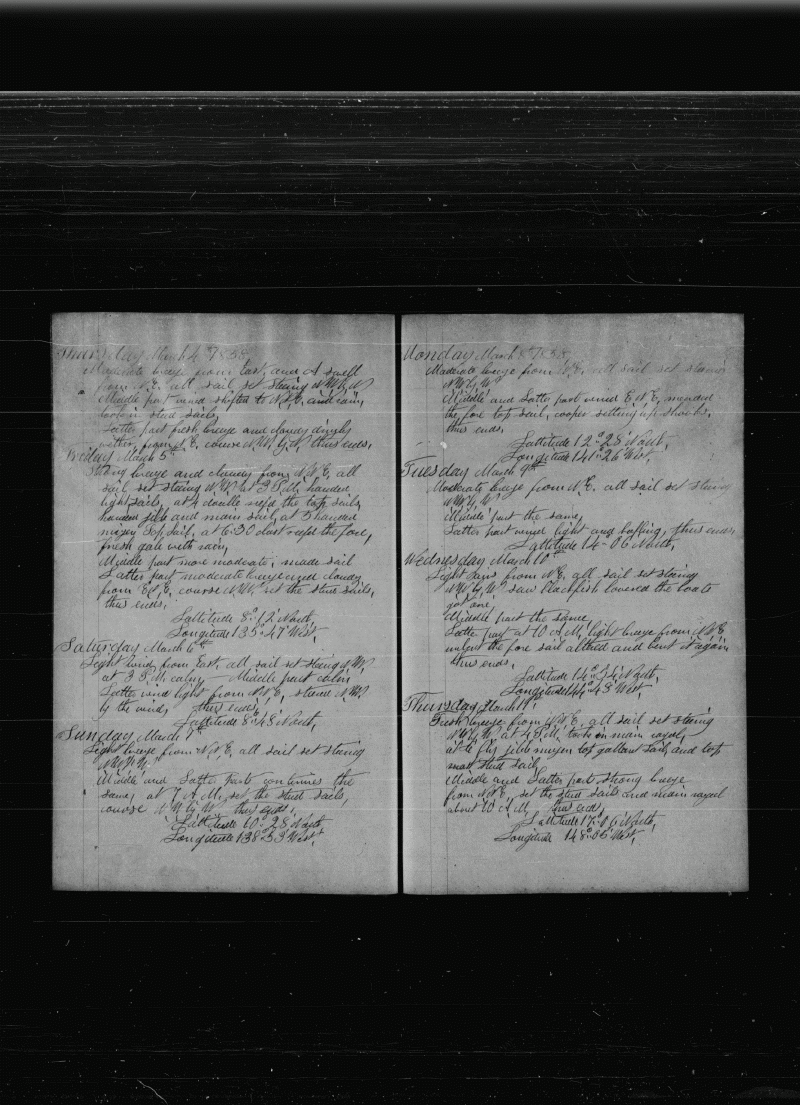 Thursday March 4th 1858
Moderate breeze from East, and A swell
from N.E. all sail set steering N.W. by W.
Middle part wind shifted to N.N.E. and rain,
took in stud sails,
Latter part fresh breeze and cloudy dingly
wether, from N.E. course N.W. by W. thus ends,
Friday March 5th
Strong breeze and cloudy from N.N.E. all
sail set steering N.W. at 3 P.M. handed
light sails, at 4 double reefd the top sails,
handed jibb and main sail, at 5 handed
mizen top sail, at 6.30 clost reefd the fore,
fresh gale with rain,
Middle part more moderate, made sail
Latter part moderate breeze and cloudy
from E.N.E. course N.W. set the stud sails,
thus ends,
Lattitude 8°.12 North
Longitude 135°.47 West,
Saturday March 6th
Light wind, from East, all sail set steering N.W.
at 3 P.M. calm, Middle part calm
Latter wind light from N.N.E, steered N.W.
by the wind, thus ends,
Lattitude 8°.43 North,
Sunday March 7th
Light breeze from N.N.E, all sail set steering
N.W. by W.
Middle and Latter parts continues the
same, at 7 A.M. set the stud sails,
course N.W. by W. thus ends,
Lattitude 10°.28 North
Longitude 138°.53 West,
Monday March 8th 1858
Moderate breeze from N.E, all sail set steering
N.W. by W.
Middle and Latter part wind E.N.E, mended
the fore top sail, cooper setting up shooks,
thus ends,
Lattitude 12°.25 North,
Longitude 141°.26 West,
Tuesday March 9th
Moderate breeze from N.E. all sail set steering
N.W. by W.
Middle part the same,
Latter part wind light and baffling, thus ends,
Lattitude 14°.06 North,
Wednesday March 10th
Light airs from N.E, all sail set steering
N.W. by W. saw blackfish lowered the boats
got one,
Middle part the same
Latter part at 10 A.M. light breeze from N.N.E
unbent the fore sail altred and bent it again
thus ends,
Lattitude 14°.54 North,
Longitude 144°.43 West
Thursday March 11
Fresh breeze from N.N.E, all sail set steering
N.W. by W, at 4 P.M. took in main royal,
at 6 fly jibb mizen top gallant sail, and top
mast stud sail,
Middle and Latter part strong breeze
from N.N.E, set the stud sails and main royal
about 10 A.M. thus ends,
Lattitude 17°.06 North,
Longitude 148°.05 West,